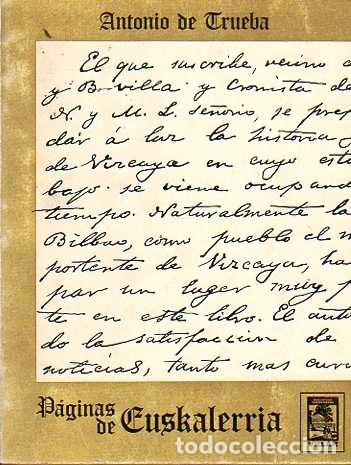 Antonio de Trueba
El que suscribe, vecino d
y B. villa y Cronista de
N. y M. L. Señorio, se prep
dár á luz la historia
de Vizcaya en cuyo este
bajo se viene ocupand
tiempo. Naturalmente la
Bilbao, como pueblo el m
portente de Vizcaya, ha
par un lugar muy p
te en este libro. El auto
do la satisfaccion de
noticias, tanto mas curi
Páginas
de Euskalerria
todocoleccion.net